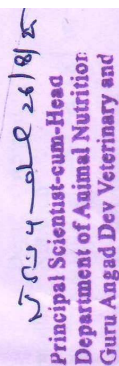 26/8/25
Principal Scientist-cum-Head
Department of Animal Nutrition
Guru Angad Dev Veterinary and